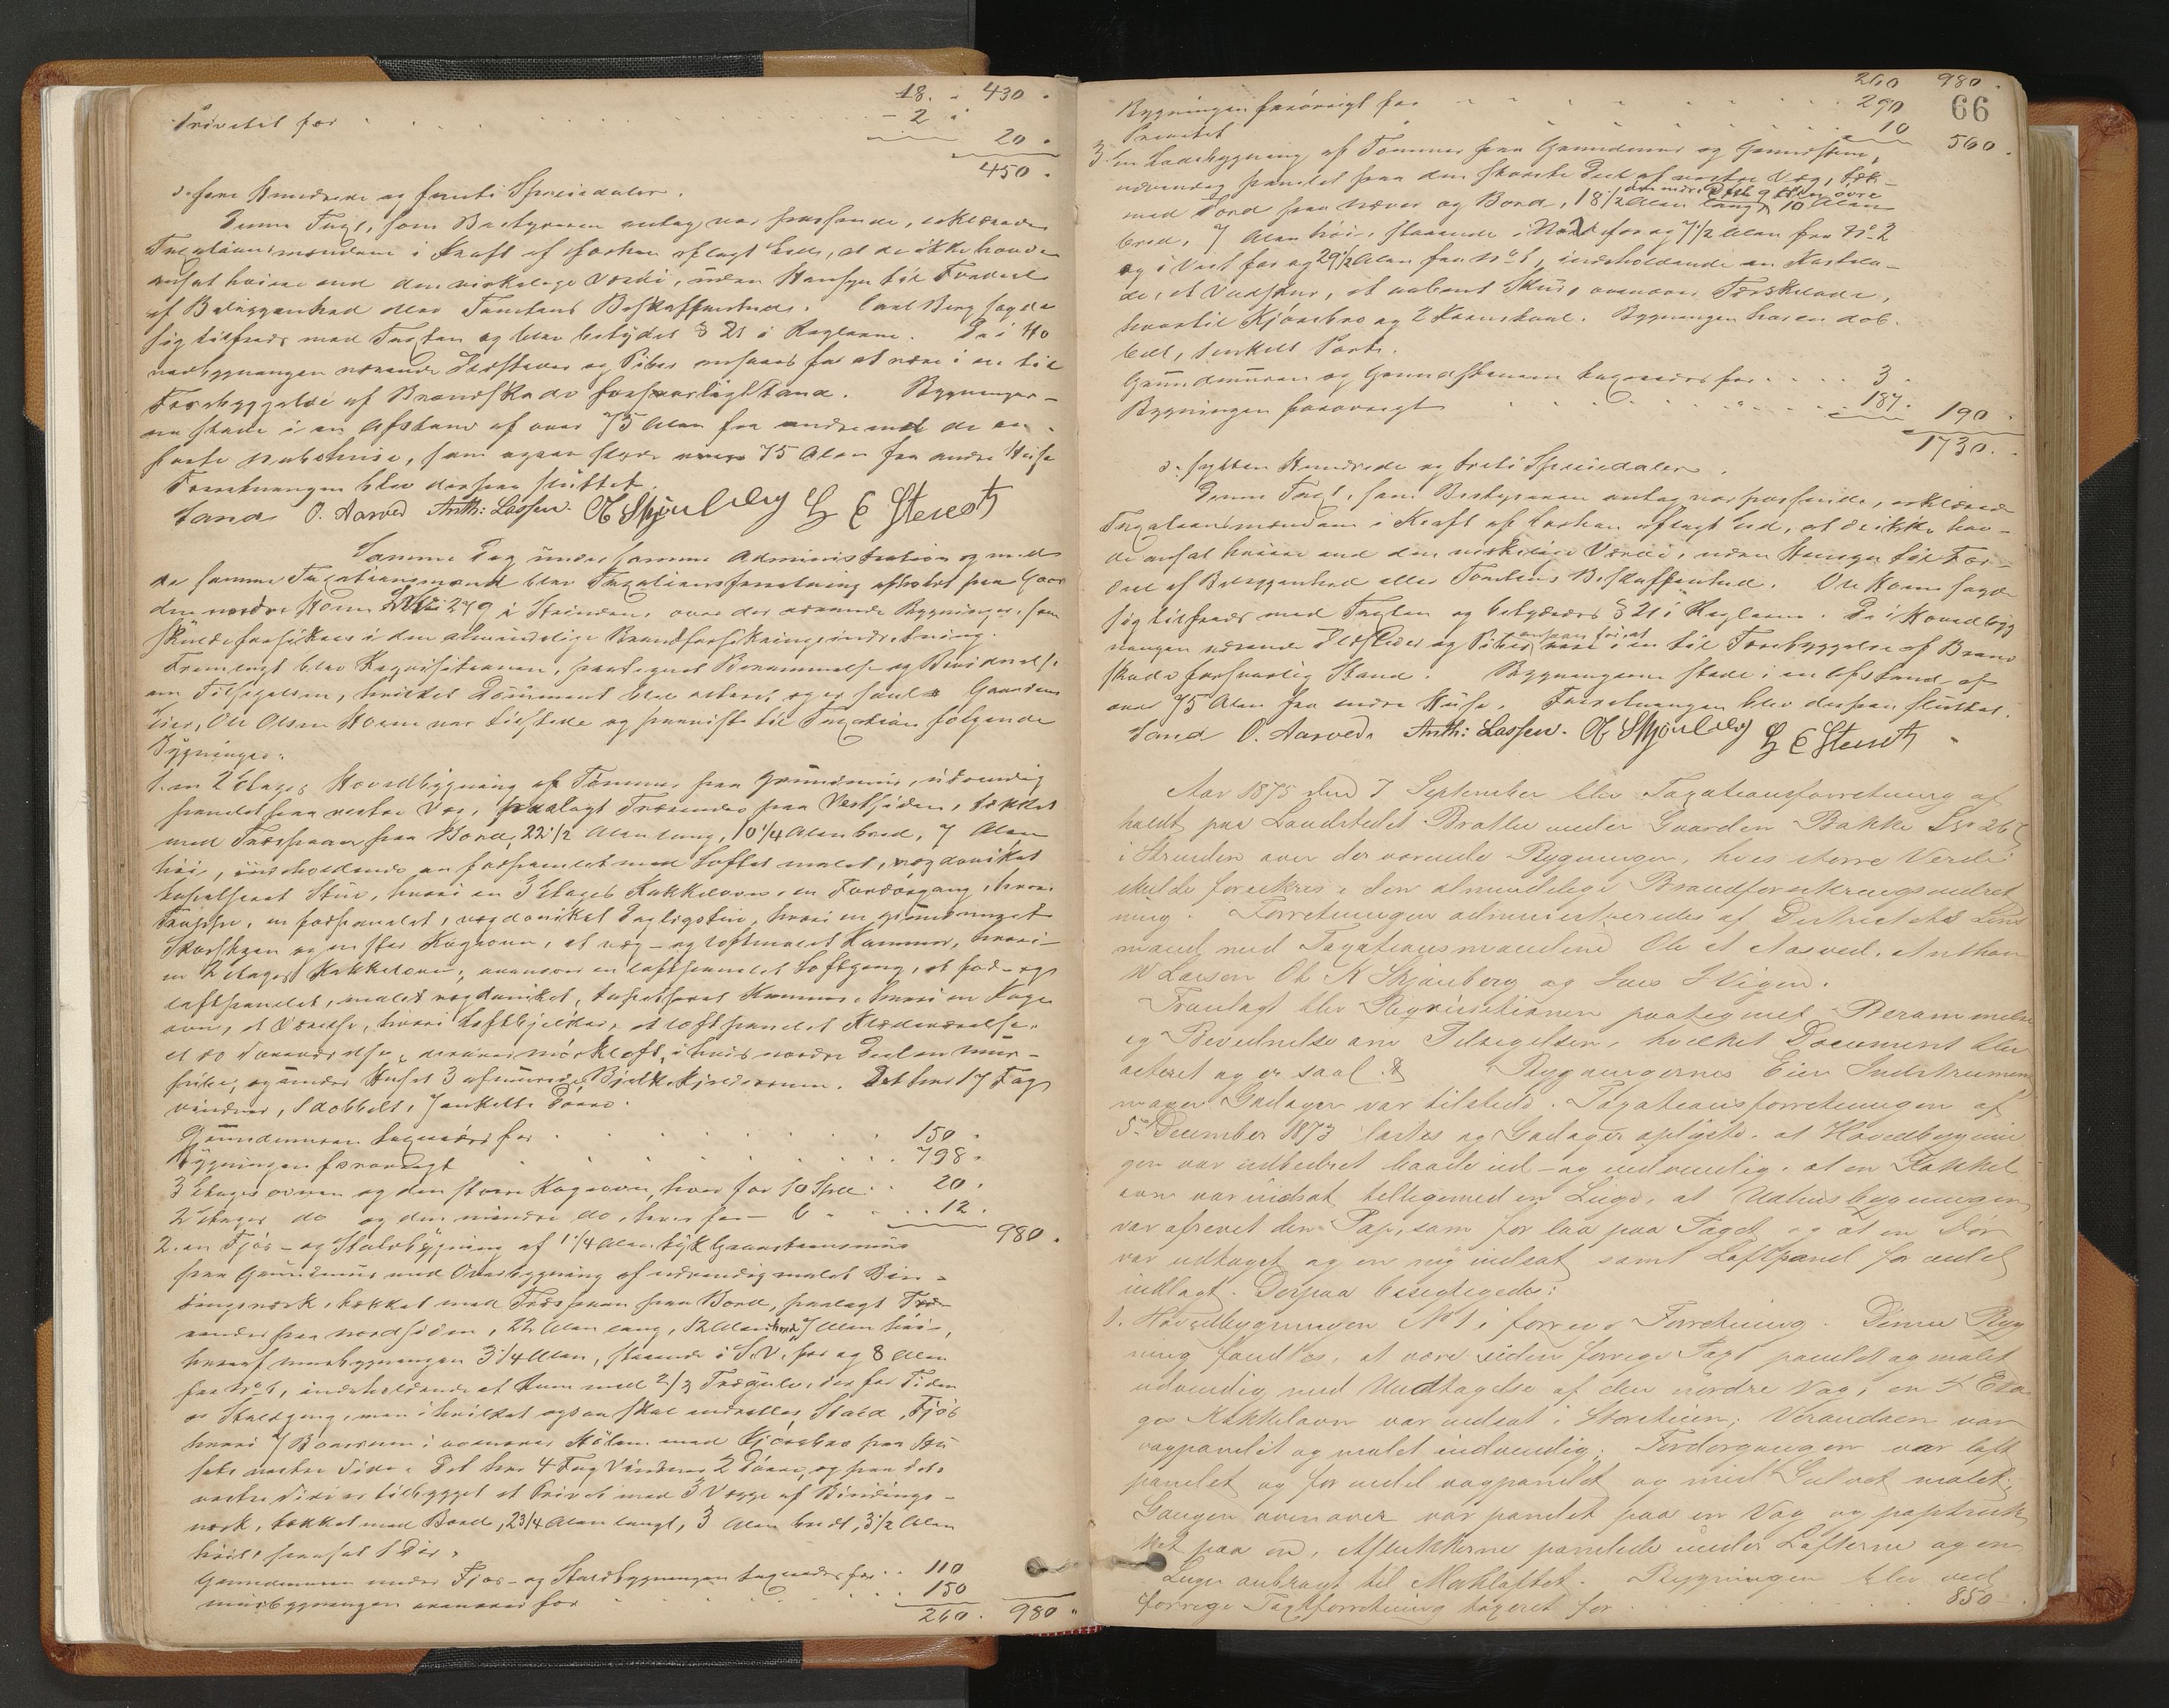 18. " 430 "
Privetet for . . . . . . . . . . - 2 "
20 "
450 "
s. fire Hundrede og femti Speciedaler.
Denne Taxt, som Bestyreren antog var passende, erklærede
Taxationsmændene i Kraft af forhen aflagt Eed, at de ikke havde
ansat høiere end den virkelige Værdi, uden Hensyn til Fordeel
af Beliggenhed eller Tomtens Beskaffenhed. Carl Berg sagde
sig tilfreds med Taxten og blev betydet § 21 i Reglerne. De i Ho
vedbygningen værende Ildsteder og Piber ansaaes for at være i en til
Forebyggelse af Brandskade forsvarlig Stand. Bygninger-
ne staae i en Afstand af over 75 Alen fra andre med de en-
kelte Nabohuse, som ogsaa staae over 75 Alen fra andre Huse
Forretningen blev derpaa sluttet.
Sand O. Aasved Anth: Lassen. O K Skjønberg L E Stenseth
Samme Dag under samme Administration og med
de samme Taxationsmænd blev Taxationsforretning afholdt paa Gaar
den nordre Hoem 279 i Strinden over der værende Bygninger, som
skulde forsikres i den almindelige Brandforsikringsindretning.
Fremlagt blev Requisitionen, paategnet Berammelse og Bevidnelse
om Tilsigelsen, hvilket Document blev acteret og er saal. Gaardens
Eier, Ole Olsen Hoem var tilstede og paaviste til Taxation følgende
Bygninger:
1. en 2 Etages Hovedbygning af Tømmer paa Grundmuur, udvendig
panelet paa vestre Væg, paalagt Trærender paa Vestsiden, tækket
med Træspaan paa Bord, 22 1/2 Alen lang, 10 1/4 Alen bred, 7 Alen
høi, indeholdende en fodpanelet med Loftet malet, vægdoniket
tapetseret Stue, hvori en 3 Etages Kakkelovn, en Fordørgang, hvori
Trappe, en fodpanelet, vægdoniket Dagligstue, hvori en
Skorsteen og en stor Kogeovn, et væg- og loftmalet Kammer, hvori
en 2 Etages Kakkelovn, ovenover en loftpanelet Loftgang, et fod- og
loftpanelet, malet vægdoniket, tapetseret Kammer, hvori en Koge
ovn, et Værelse, hvori Loftbjelker, et loftpanelet Klædeværelse,
et do Soveværelse, derover mørkloft, i hvis nordre Deel en muur-
pibe, og under Huset 3 afmurede Bjelkekjelderrum. Det har 17 Fag
vinduer, 1 dobbelt, 7 enkelte Døre.
Grundmuren taxeredes for . . . . . . . 150 "
Bygningen forøvrigt . . . . . . . 798 "
3 Etages ovnen og den større Kogeovn, hver for 10 Spd. . 20 "
2 Etages do og den mindre do, hver for - 6 " . . 12 "
980 "
2. en Fjøs- og Staldbygning af 1 1/4 Alen tyk Graasteensmuur
paa Grundmuur med Overbygning af udvendig malet Bin-
dingsværk, tækket med Træspaan paa Bord, paalagt Træ-
render paa nordsiden, 22 Alen lang, 12 Alen bred, 7 Alen høi,
hvoraf muurbygningen 3 1/4 Alen, staaende i S.V. for og 8 Alen
fra No 1, indeholdende et Rum med 2/3 Trægulv, der for Tiden
er Staldgang, men i hvilket ogsaa skal indrettes Stald, Fjøs
hvori 7 Baasrum; ovenover Høtem med Kjørebro paa Hu
sets vestre Side. Det har 4 Fag Vinduer, 2 Døre, og paa dets
vestre Side er tilbygget et Privet med 3 Vægge af Bindings-
værk, tækket med Bord, 2 3/4 Alen langt, 3 Alen bredt, 3 1/2 Alen
høit, paasat 1 Dør.
Grundmuren under Fjøs- og Staldbygningen taxeredes for . . 110
muurbygningen ovenover for . . . . . . . 150
260. 980 "
260 980
66
Bygningen forøvrigt for . . . . . . . 290
Privetet . . . . . . . 10
560 "
3. En Ladebygning af Tømmer paa Grundmuur og Grundsteen,
udvendig panelet paa den største Deel af vestre Væg, tæk-
den nedre Deel 9 Alen, øvre
med Torv paa Næver og Bord, 18 1/2 Alen lang, 10 Alen
bred, 7 Alen høi, staaende i Nord for og 7 1/2 Alen fra No 2
og i Vest for og 29 1/2 Alen fra No 1, indeholdende en Kastela-
de, et Vedskur, et aabent Skur, ovenover Tærskelade,
hvortil Kjørebro og 2 Kornstaal. Bygningen har en dob.
belt, 1 enkelt Port.
Grundmuren og Grundstenene taxeredes for . . . . 3 "
Bygningen forøvrigt . . . . . . . 187 "
190 "
1730 "
s. sytten Hundrede og treti Speciedaler.
Denne Taxt, som Bestyreren antog var passende, erklærede
Taxationsmændene i Kraft af forhen aflagt Eed, at de ikke hav-
de ansat høiere end den virkelige Værdi, uden Hensyn til For-
deel af Beliggenhed eller Tomtens Beskaffenhed. Ole Hoem sagde
sig tilfreds med Taxten og betydedes § 21 i Reglerne. De i Hovedbyg
ansaaes for at
ningen værende Ildsteder og Piber være i en til Forebyggelse af Brand
skade forsvarlig Stand. Bygningerne staae i en Afstand af
over 75 Alen fra andre Huse. Forretningen blev derpaa sluttet.
Sand O. Aasved. Anth: Lassen. O K Skjønberg L E Stenseth
Aar 1875 den 7 September blev Taxationsforretning af
holdt paa Landstedet Bratlie under Gaarden Bakke Lno 267
i Strinden over der værende Bygninger, hvis større Verdi
skulde forsikres i den almindelige Brandforsikringsindret
ning. Forretningen administreredes af Districtets Lens
mand med Taxationsmændene Ole A Aasved, Anthon
W Larsen Ole K Skjønberg og Jens J Vigen.
Fremlagt blev Requisitionen paategnet Berammelse
og Bevidnelse om Tilsigelsen, hvilket Document blev
acteret og er saal. Bygningernes Eier Instrumen
mager Gadager var tilstede. Taxationsforretningen af
5te December 1873 læstes og Gadager oplyste, at Hovedbygnin
gen var udbedret baade ind- og udvendig, at en Kakkel
ovn var indsat, tilligemed en Luge, at Udhusbygningen
var afrevet den Pap, som før laa paa Taget og at en Dør
var udtaget og en ny indsat samt Loftpanel for endel
indlagt. Derpaa besigtigedes:
1. Hovedbygningen No 1 i forrige Forretning. Denne Byg
ning fandtes, at være siden forrige Taxt panelet og malet
udvendig med Undtagelse af den nordre Væg, en 4 Eta
ges Kakkelovn var indsat i Storstuen; Verandaen var
vægpanelet og malet indvendig; Fordørgangen var loft
panelet og for endel vægpanelet og med Gulvet malet;
Gangen ovenover var panelet paa en Væg og paptruk
ket paa en, Aflukkerne panelede under Lofterne og en
Luge anbragt til Mørkloftet. Bygningen blev ved
forrige Taxtforretning taxeret for . . . . . . 850 "